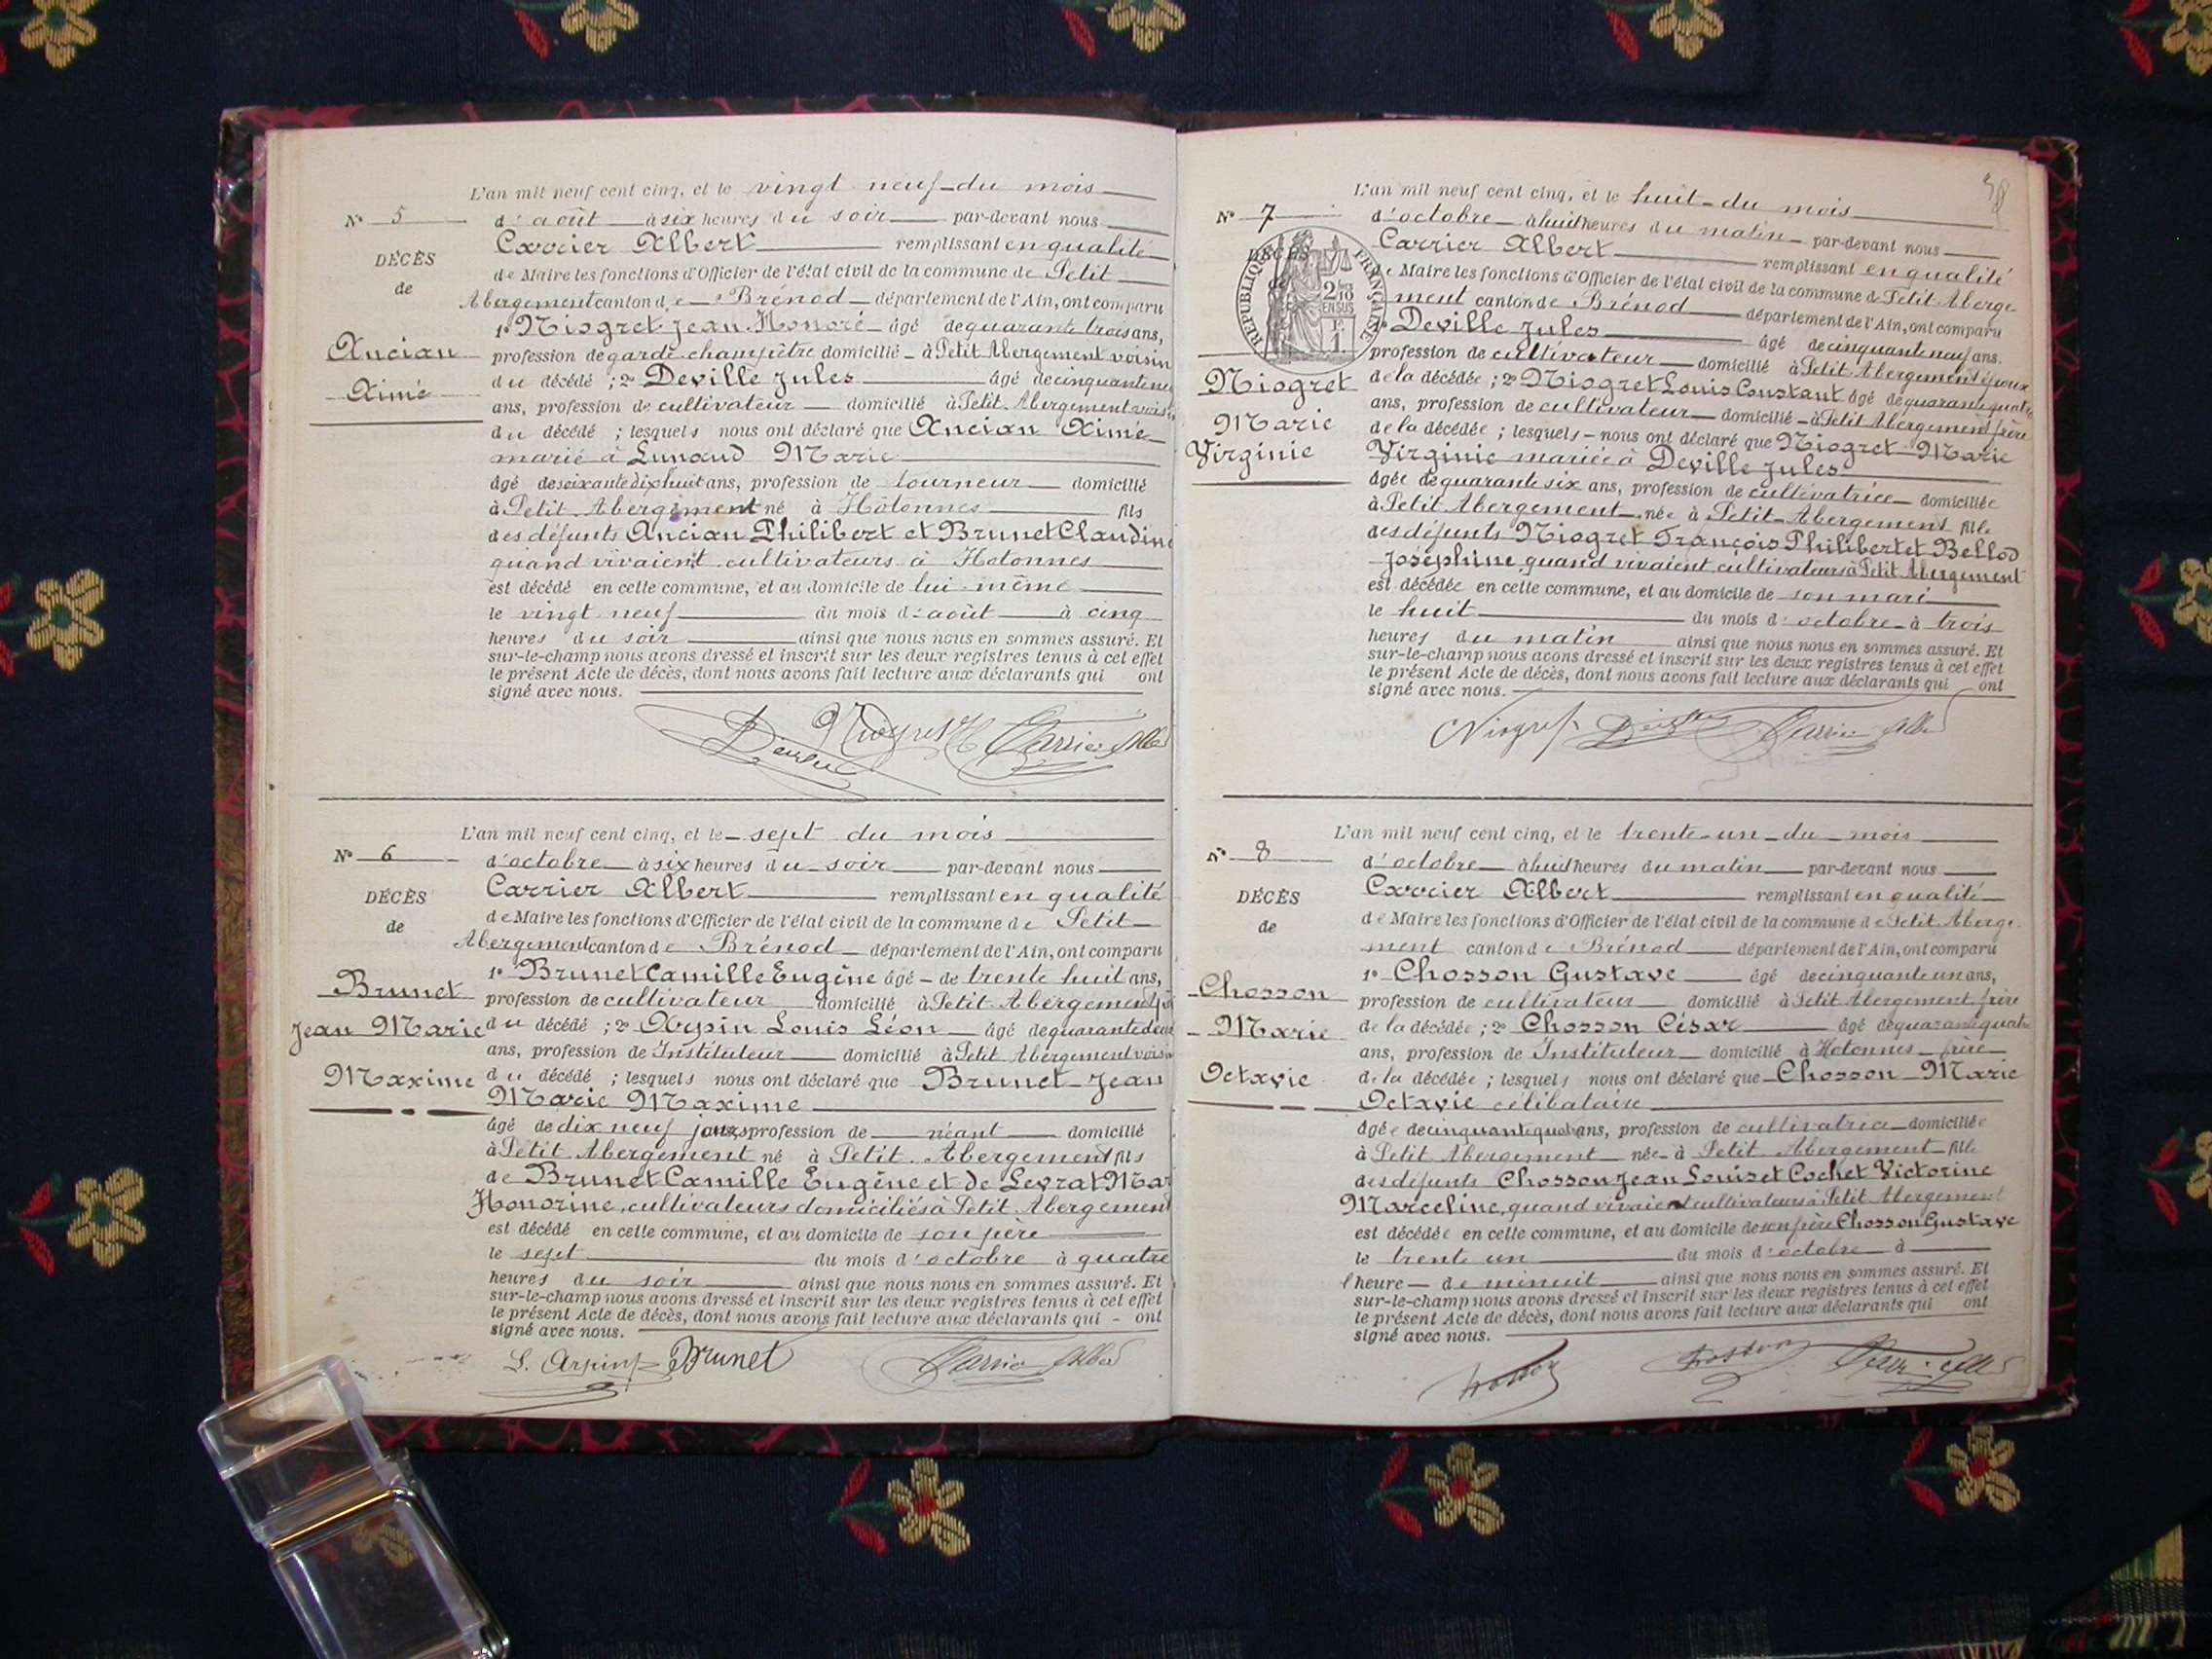 L'an mil neuf cent cinq, et le vingt neuf du mois
N° 5
d'août à six heures du soir par-devant nous
Carrier Albert remplissant en qualité
DÉCÈS
de Maire les fonctions d'Officier de l'état civil de la commune de Petit
de
Abergement canton de Brénod département de l'Ain, ont comparu
1° Niogret Jean Honoré âgé de quarante trois ans,
Ancian
profession de garde champêtre domicilié à Petit Abergement voisin
du décédé ; 2° Deville Jules âgé de cinquante neuf
Aimé
ans, profession de cultivateur domicilié à Petit Abergement voisin
du décédé ; lesquels nous ont déclaré que Ancian Aimé
marié à Lunaud Marie
âgé de soixante dix huit ans, profession de tourneur domicilié
à Petit Abergement né à Hotonnes fils
des défunts Ancian Philibert et Brunet Claudine
quand vivaient cultivateurs à Hotonnes
est décédé en cette commune, et au domicile de lui-même
le vingt neuf du mois d'août à cinq
heures du soir ainsi que nous nous en sommes assuré. Et
sur-le-champ nous avons dressé et inscrit sur les deux registres tenus à cet effet
le présent Acte de décès, dont nous avons fait lecture aux déclarants qui ont
signé avec nous.
L'an mil neuf cent cinq, et le sept du mois
N° 6
d'octobre à six heures du soir par-devant nous
Carrier Albert remplissant en qualité
DÉCÈS
de Maire les fonctions d'Officier de l'état civil de la commune de Petit
de
Abergement canton de Brénod département de l'Ain, ont comparu
1° Brunet Camille Eugène âgé de trente huit ans,
Brunet
profession de cultivateur domicilié à Petit Abergement
Jean Marie
du décédé ; 2° Arpin Louis Léon âgé de quarante deux
ans, profession de Instituteur domicilié à Petit Abergement voisin
Maxime
du décédé ; lesquels nous ont déclaré que Brunet Jean
Marie Maxime
âgé de dix neuf jours profession de néant domicilié
à Petit Abergement né à Petit Abergement fils
de Brunet Camille Eugène et de Levrat Mar
Honorine, cultivateurs domiciliés à Petit Abergement
est décédé en cette commune, et au domicile de son père
le sept du mois d'octobre à quatre
heures du soir ainsi que nous nous en sommes assuré. Et
sur-le-champ nous avons dressé et inscrit sur les deux registres tenus à cet effet
le présent Acte de décès, dont nous avons fait lecture aux déclarants qui ont
signé avec nous.
L. Arpin Brunet Carrier Albert
38
L'an mil neuf cent cinq, et le huit du mois
N° 7
d'octobre à huit heures du matin par-devant nous
Carrier Albert remplissant en qualité
DÉCÈS
RÉPUBLIQUE FRANÇAISE
2/10 EN SUS
de Maire les fonctions d'Officier de l'état civil de la commune de Petit Aberge-
ment canton de Brénod département de l'Ain, ont comparu
1° Deville Jules âgé de cinquante neuf ans.
profession de cultivateur domicilié à Petit Abergement époux
Niogret
de la décédée ; 2° Niogret Louis Constant âgé de quarante quatre
ans, profession de cultivateur domicilié à Petit Abergement frère
Marie
de la décédée ; lesquels nous ont déclaré que Niogret Marie
Virginie
Virginie mariée à Deville Jules
âgée de quarante six ans, profession de cultivatrice domiciliée
à Petit Abergement née à Petit Abergement fille
des défunts Niogret François Philibert et Bellod
Joséphine, quand vivaient cultivateurs à Petit Abergement
est décédée en cette commune, et au domicile de son mari
le huit du mois d'octobre à trois
heures du matin ainsi que nous nous en sommes assuré. Et
sur-le-champ nous avons dressé et inscrit sur les deux registres tenus à cet effet
le présent Acte de décès, dont nous avons fait lecture aux déclarants qui ont
signé avec nous.
Niogret Carrier Albert
L'an mil neuf cent cinq, et le trente-un du mois
N° 8
d'octobre à huit heures du matin par-devant nous
Carrier Albert remplissant en qualité
DÉCÈS
de Maire les fonctions d'Officier de l'état civil de la commune de Petit Aberge-
de
ment canton de Brénod département de l'Ain, ont comparu
1° Chosson Gustave âgé de cinquante un ans,
Chosson
profession de cultivateur domicilié à Petit Abergement frère
Marie
de la décédée ; 2° Chosson César âgé de quarante quatre
ans, profession de Instituteur domicilié à Hotonnes frère
Octavie
de la décédée ; lesquels nous ont déclaré que Chosson Marie
Octavie célibataire
âgée de cinquante quatre ans, profession de cultivatrice domiciliée
à Petit Abergement née à Petit Abergement fille
des défunts Chosson Jean Louis et Cochet Victorine
Marceline, quand vivaient cultivateurs à Petit Abergement
est décédée en cette commune, et au domicile de son frère Chosson Gustave
le trente un du mois d'octobre à
l'heure de minuit ainsi que nous nous en sommes assuré. Et
sur-le-champ nous avons dressé et inscrit sur les deux registres tenus à cet effet
le présent Acte de décès, dont nous avons fait lecture aux déclarants qui ont
signé avec nous.